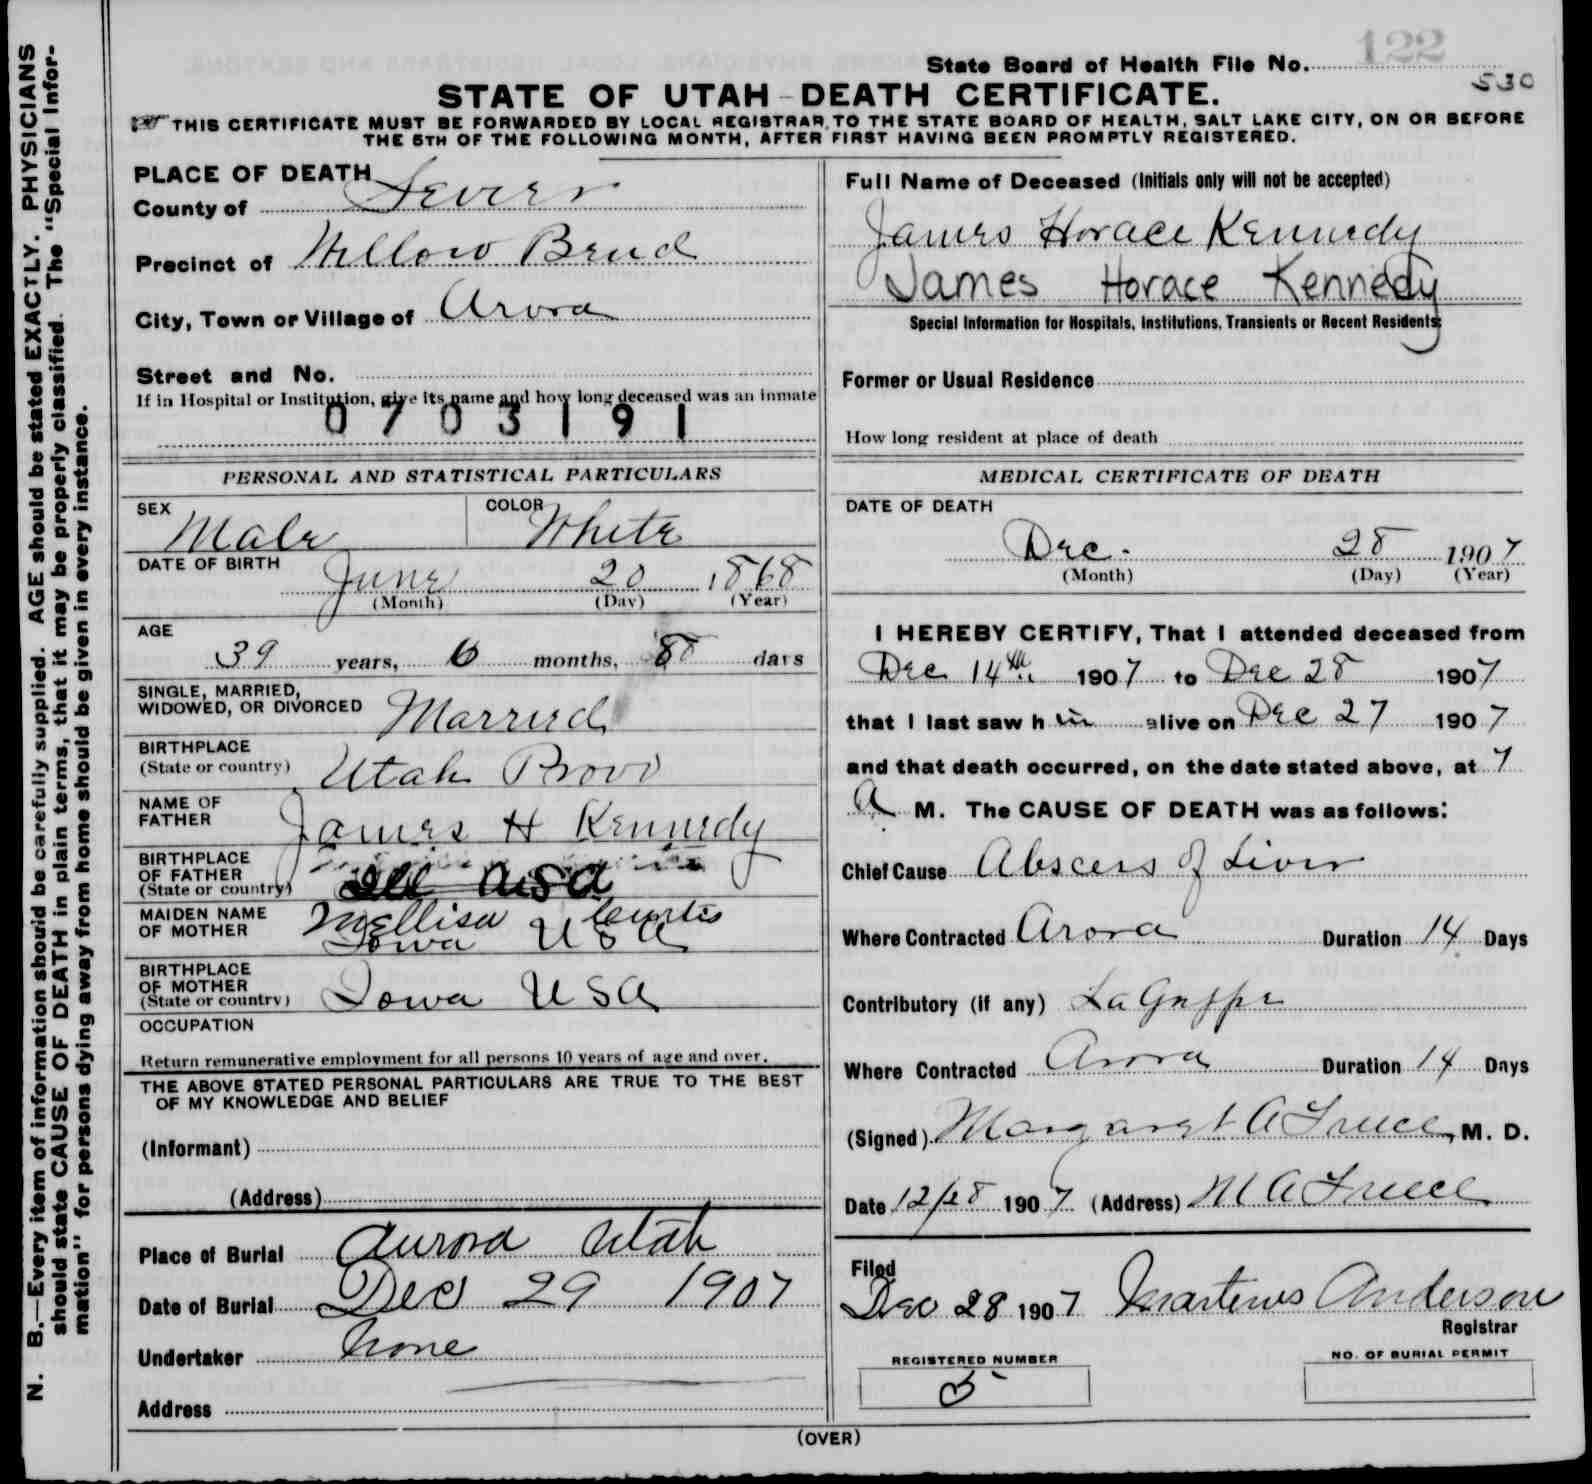 122
State Board of Health File No.
530
STATE OF UTAH - DEATH CERTIFICATE.
THIS CERTIFICATE MUST BE FORWARDED BY LOCAL REGISTRAR TO THE STATE BOARD OF HEALTH, SALT LAKE CITY, ON OR BEFORE
THE 5TH OF THE FOLLOWING MONTH, AFTER FIRST HAVING BEEN PROMPTLY REGISTERED.
N. B.—Every item of information should be carefully supplied. AGE should be stated EXACTLY. PHYSICIANS
should state CAUSE OF DEATH in plain terms, that it may be properly classified. The "Special Infor-
mation" for persons dying away from home should be given in every instance.
PLACE OF DEATH
County of Sevier
Precinct of Willow Bend
City, Town or Village of Arora
Street and No.
If in Hospital or Institution, give its name and how long deceased was an inmate
0703191
PERSONAL AND STATISTICAL PARTICULARS
SEX Male COLOR White
DATE OF BIRTH June 20 1868
(Month) (Day) (Year)
AGE
39 years, 6 months, 8 days
SINGLE, MARRIED,
WIDOWED, OR DIVORCED Married
BIRTHPLACE
(State or country) Utah Provo
NAME OF
FATHER James H Kennedy
BIRTHPLACE
OF FATHER
(State or country) Ill USA
MAIDEN NAME
OF MOTHER Mellisa Curtis
Iowa USA
BIRTHPLACE
OF MOTHER
(State or country) Iowa USA
OCCUPATION
Return remunerative employment for all persons 10 years of age and over.
THE ABOVE STATED PERSONAL PARTICULARS ARE TRUE TO THE BEST
OF MY KNOWLEDGE AND BELIEF
(Informant)
(Address)
Place of Burial Aurora Utah
Date of Burial Dec 29 1907
Undertaker None
Address
Full Name of Deceased (Initials only will not be accepted)
James Horace Kennedy
James Horace Kennedy
Special Information for Hospitals, Institutions, Transients or Recent Residents:
Former or Usual Residence
How long resident at place of death
MEDICAL CERTIFICATE OF DEATH
DATE OF DEATH
Dec. 28 1907
(Month) (Day) (Year)
I HEREBY CERTIFY, That I attended deceased from
Dec 14th 1907 to Dec 28 1907
that I last saw h im alive on Dec 27 1907
and that death occurred, on the date stated above, at 7
A M. The CAUSE OF DEATH was as follows:
Chief Cause Abscess of Liver
Where Contracted Arora Duration 14 Days
Contributory (if any) La Grippe
Where Contracted Arora Duration 14 Days
(Signed) Margaret A Freece, M. D.
Date 12/28 1907 (Address) M A Freece
Filed
Dec 28 1907 Martenus Anderson
Registrar
REGISTERED NUMBER
5
NO. OF BURIAL PERMIT
(OVER)